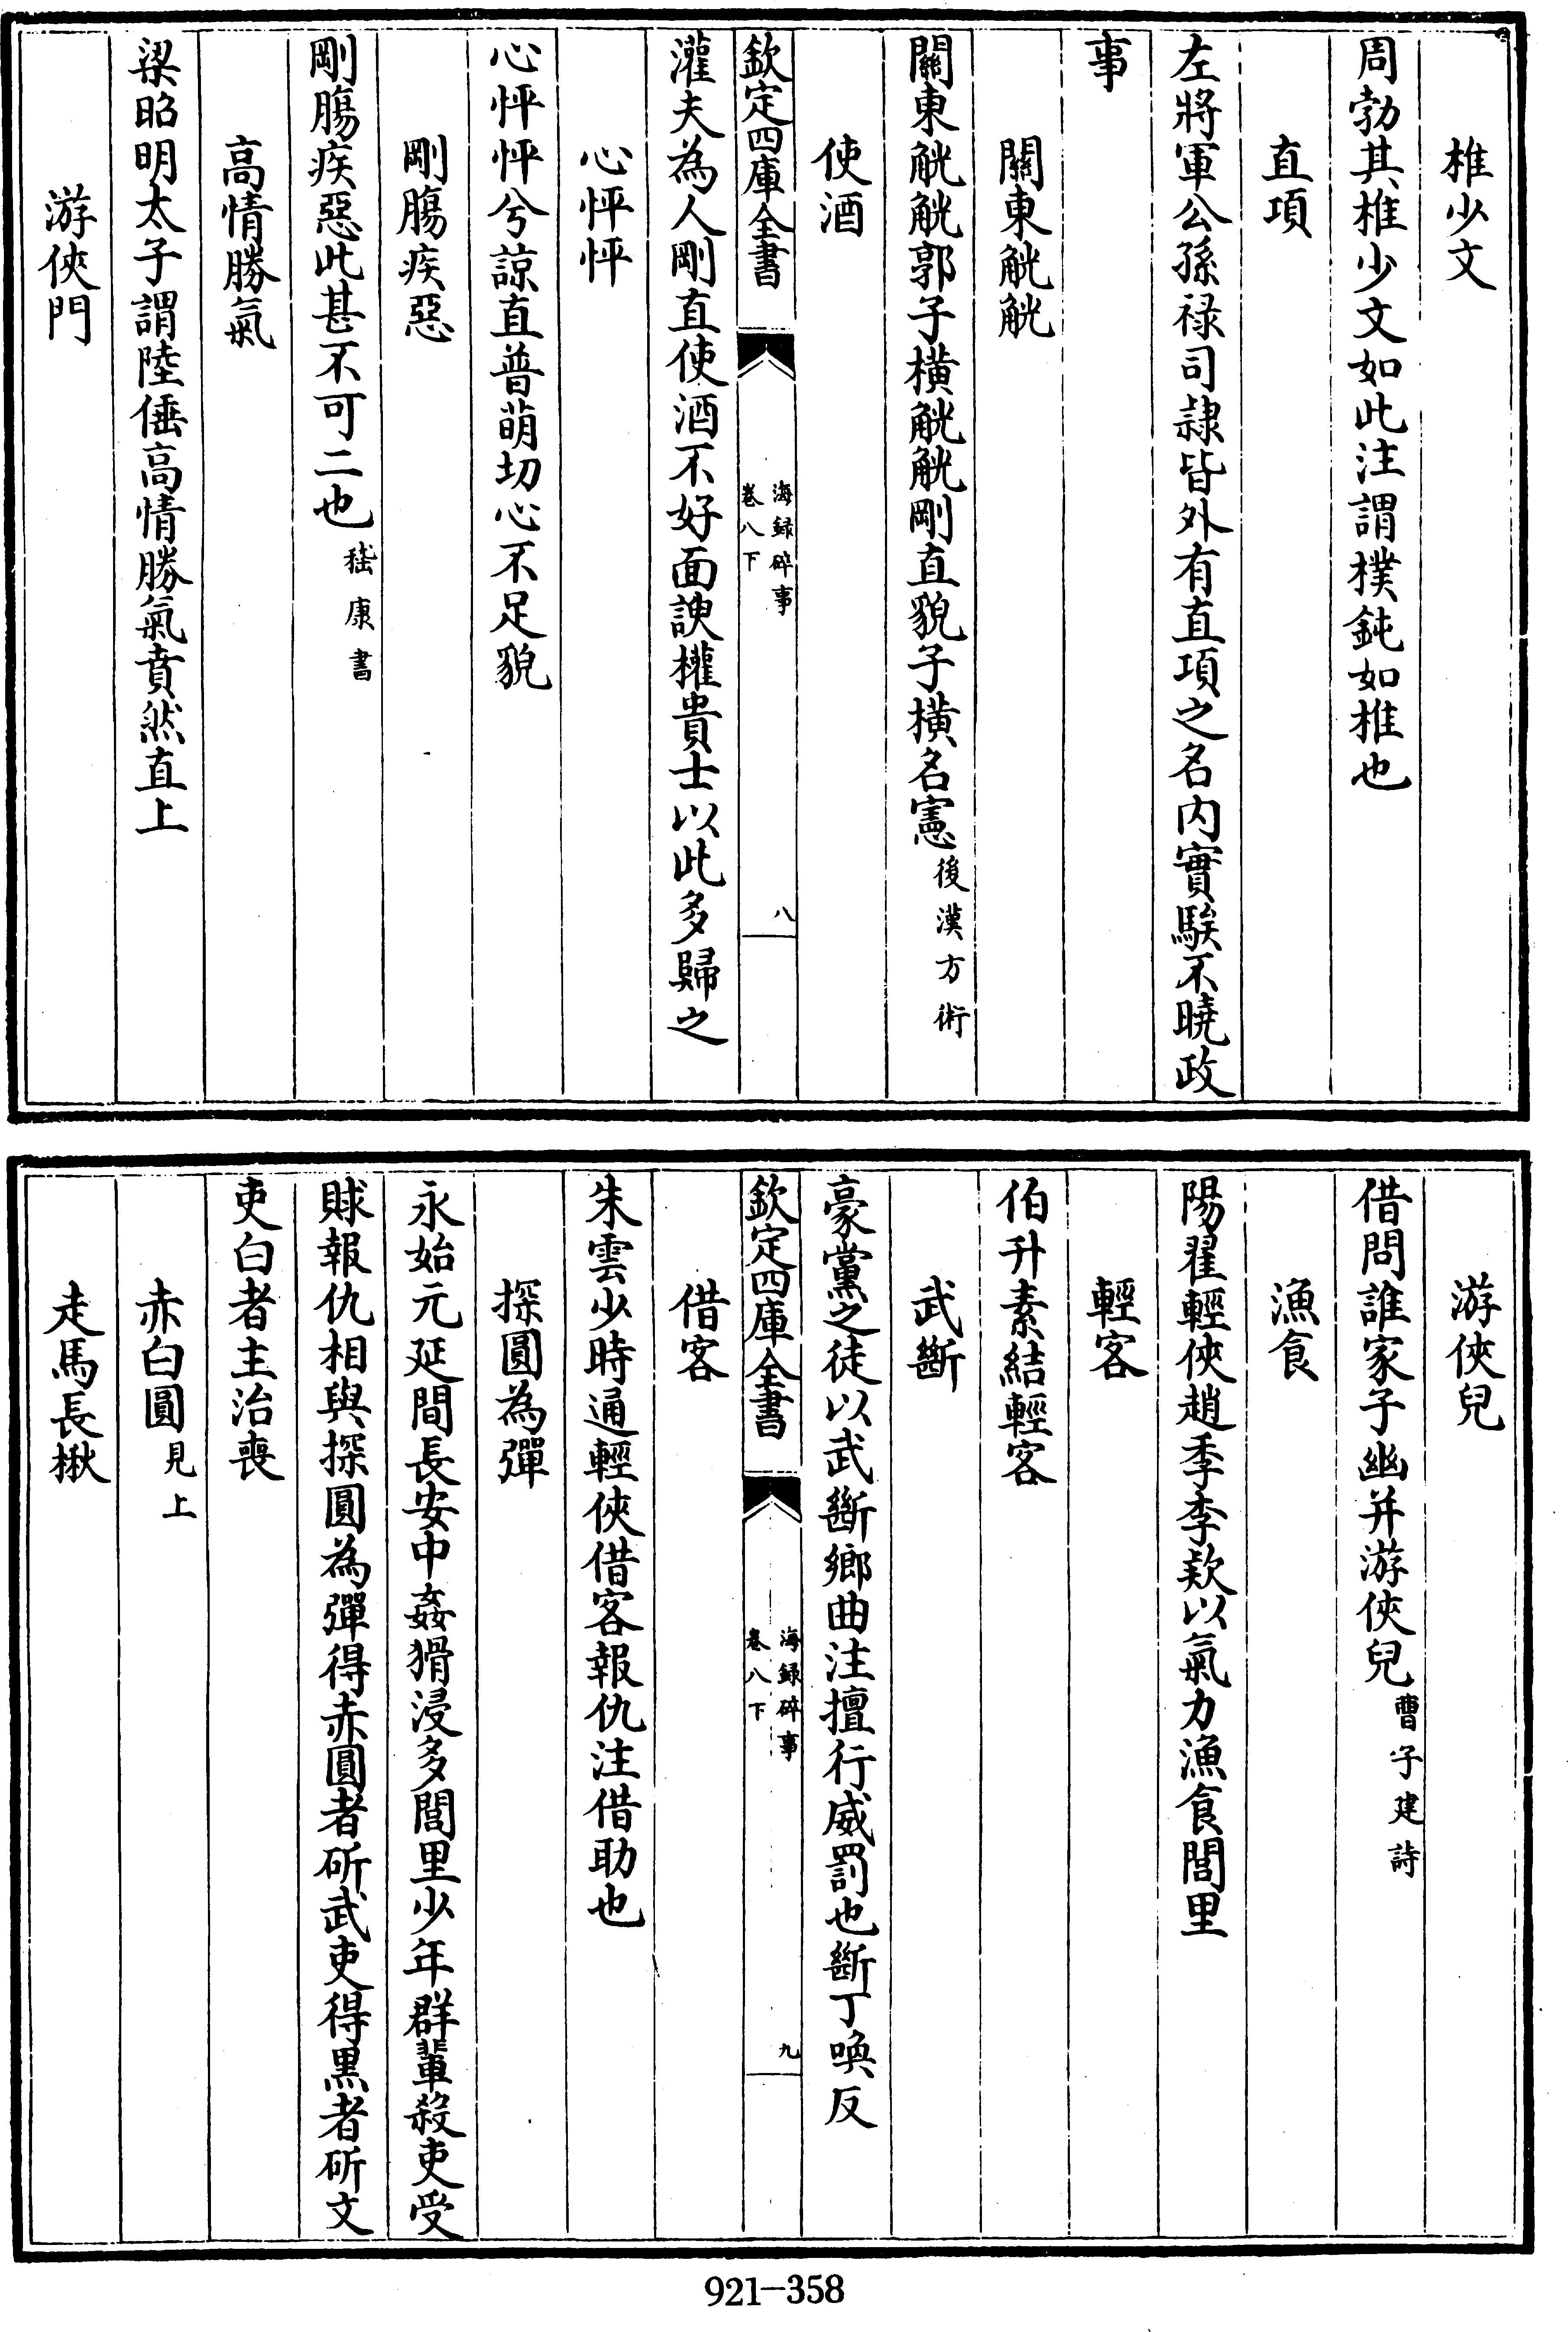 椎少文
周勃其椎少文如此注謂樸鈍如椎也
直項
左將軍公孫禄司隷皆外有直項之名内實騃不曉政
事
關東觥觥
關東觥觥郭子横觥觥剛直貌子横名憲後漢方術
使酒
欽定四庫全書
海録碎事
卷八下
八
灌夫為人剛直使酒不好面諛權貴士以此多歸之
心怦怦
心怦怦兮諒直普萌切心不足貌
剛腸疾惡
剛腸疾惡此甚不可二也嵇康書
高情勝氣
梁昭明太子謂陸倕高情勝氣賁然直上
游俠門
游俠兒
借問誰家子幽并游俠兒曹子建詩
漁食
陽翟輕俠趙季李款以氣力漁食閭里
輕客
伯升素結輕客
武斷
豪黨之徒以武斷鄉曲注擅行威罰也斷丁喚反
欽定四庫全書
海録碎事
卷八下
九
借客
朱雲少時通輕俠借客報仇注借助也
探圓為彈
永始元延間長安中姦猾浸多閭里少年群輩殺吏受
賕報仇相與探圓為彈得赤圓者斫武吏得黑者斫文
吏白者主治喪
赤白圓見上
走馬長楸
921-358